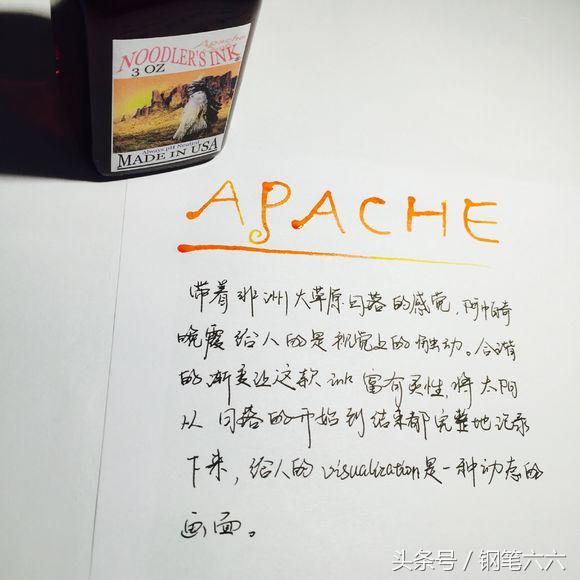 Apache
NOODLER'S INK
3 OZ
Always pH Neutral
MADE IN USA
APACHE
带着非洲大草原日落的感觉,阿帕奇
晚霞给人的是视觉上的触动。合谐
的渐变让这款ink富有灵性,将太阳
从日落的开始到结束都完整地记录
下来,给人的visualization是一种动态的
画面。
头条号/钢笔六六